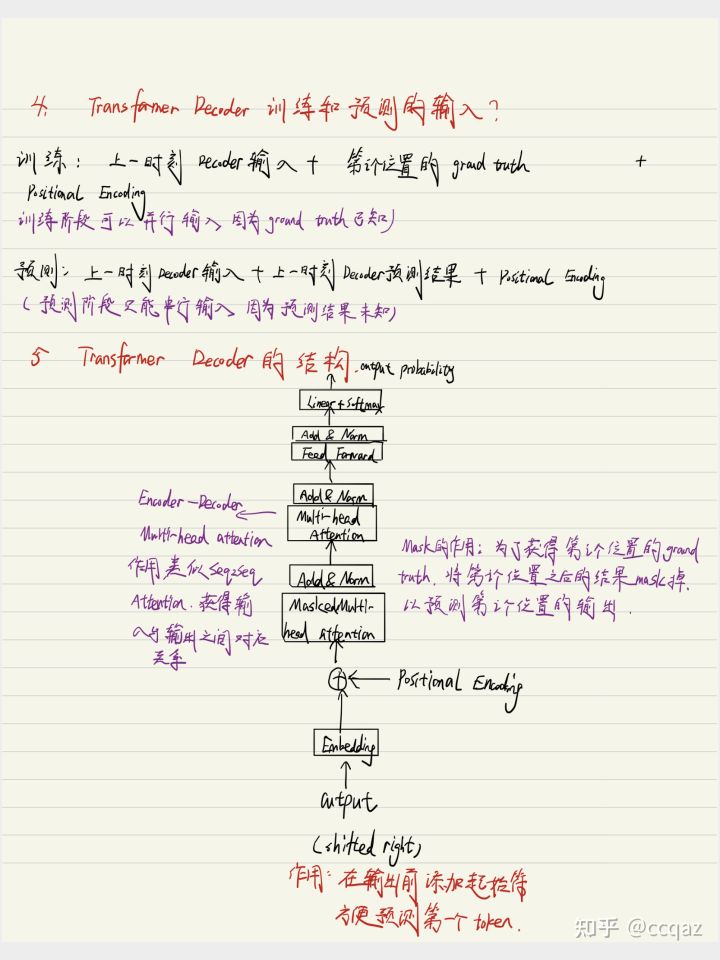 4. Transformer Decoder 训练和预测的输入?
训练: 上一时刻 Decoder 输入 + 第i个位置的 ground truth +
Positional Encoding
训练阶段可以并行输入, 因为 ground truth 已知)
预测: 上一时刻 Decoder 输入 + 上一时刻 Decoder 预测结果 + Positional Encoding
( 预测阶段只能串行输入, 因为预测结果未知)
5 Transformer Decoder 的结构
output probability
Linear + Softmax
Add & Norm
Feed Forward
Add & Norm
Multi-head
Attention
Add & Norm
Masked Multi-
head Attention
Positional Encoding
Embedding
output
(shifted right)
作用: 在输出前添加起始符
方便预测第一个 token.
Encoder-Decoder
Multi-head attention
作用类似 seq2seq
Attention. 获得输
入与输出之间对应
关系
Mask的作用: 为了获得第i个位置的 ground
truth, 将第i个位置之后的结果 mask掉,
以预测第i个位置的输出.
知乎 @ccqaz